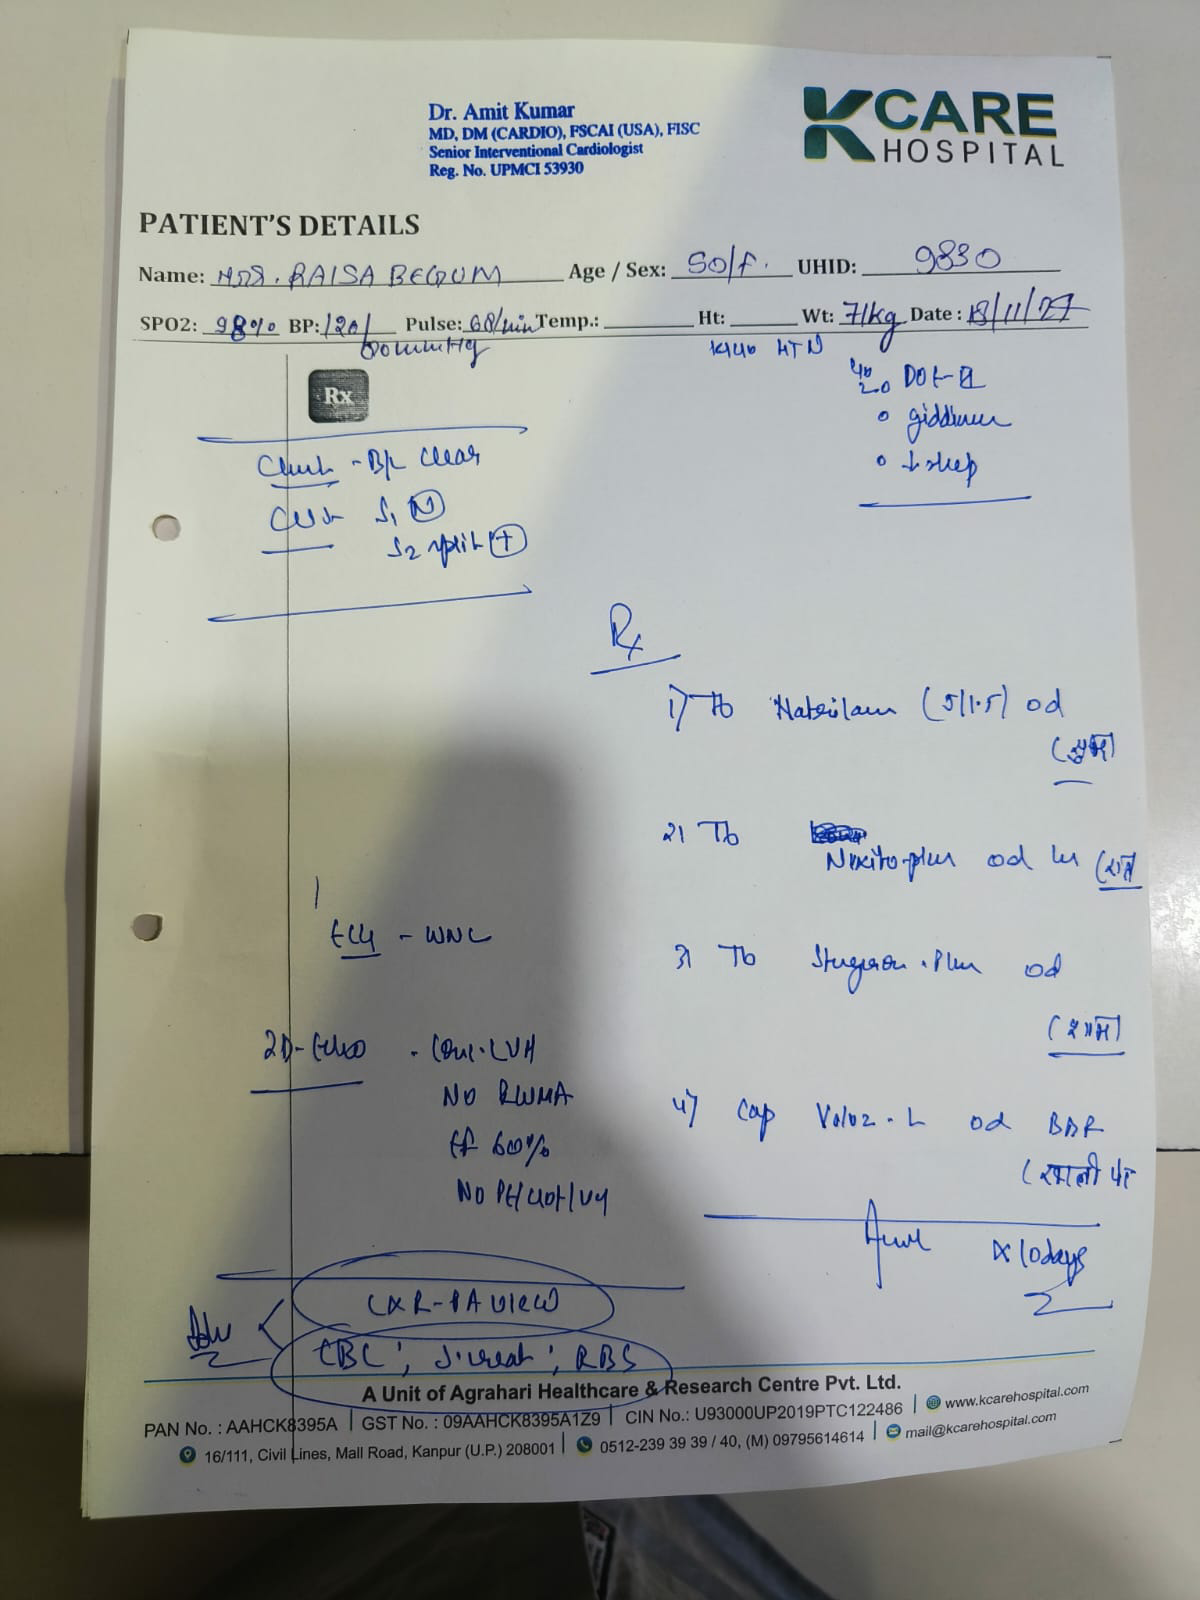 Dr. Amit Kumar
MD, DM (CARDIO), FSCAI (USA), FISC
Senior Interventional Cardiologist
Reg. No. UPMCI 53930
KCARE
HOSPITAL
PATIENT'S DETAILS
Name: Mrs. RAISA BEGUM Age / Sex: 50/F. UHID: 9830
SPO2: 98% BP: 120/ Pulse: 68/min Temp.: Ht: Wt: 71kg Date: 18/11/
80mmHg K/C/O HTN
Rx
c/o DOE-II
giddiness
↓ sleep
Chest - B/L clear
CVS S1 N
S2 split +
Rx
1) Tb Natrilam (5/1.5) od
(सुबह)
2) Tb
Nexito-plus od
3) Tb Stugeron.Plus od
(शाम)
ECG - WNL
2D-Echo - Conc. LVH
NO RWMA
EF 60%
NO PE/clot/vg
4) Cap Voloz-L od BBF
(खाली पेट
x 10days
Adv
CXR-PA VIEW
CBC; S.creat; RBS
A Unit of Agrahari Healthcare & Research Centre Pvt. Ltd.
PAN No. : AAHCK8395A | GST No. : 09AAHCK8395A1Z9 | CIN No.: U93000UP2019PTC122486 | www.kcarehospital.com
16/111, Civil Lines, Mall Road, Kanpur (U.P.) 208001 | 0512-239 39 39 / 40, (M) 09795614614 | mail@kcarehospital.com